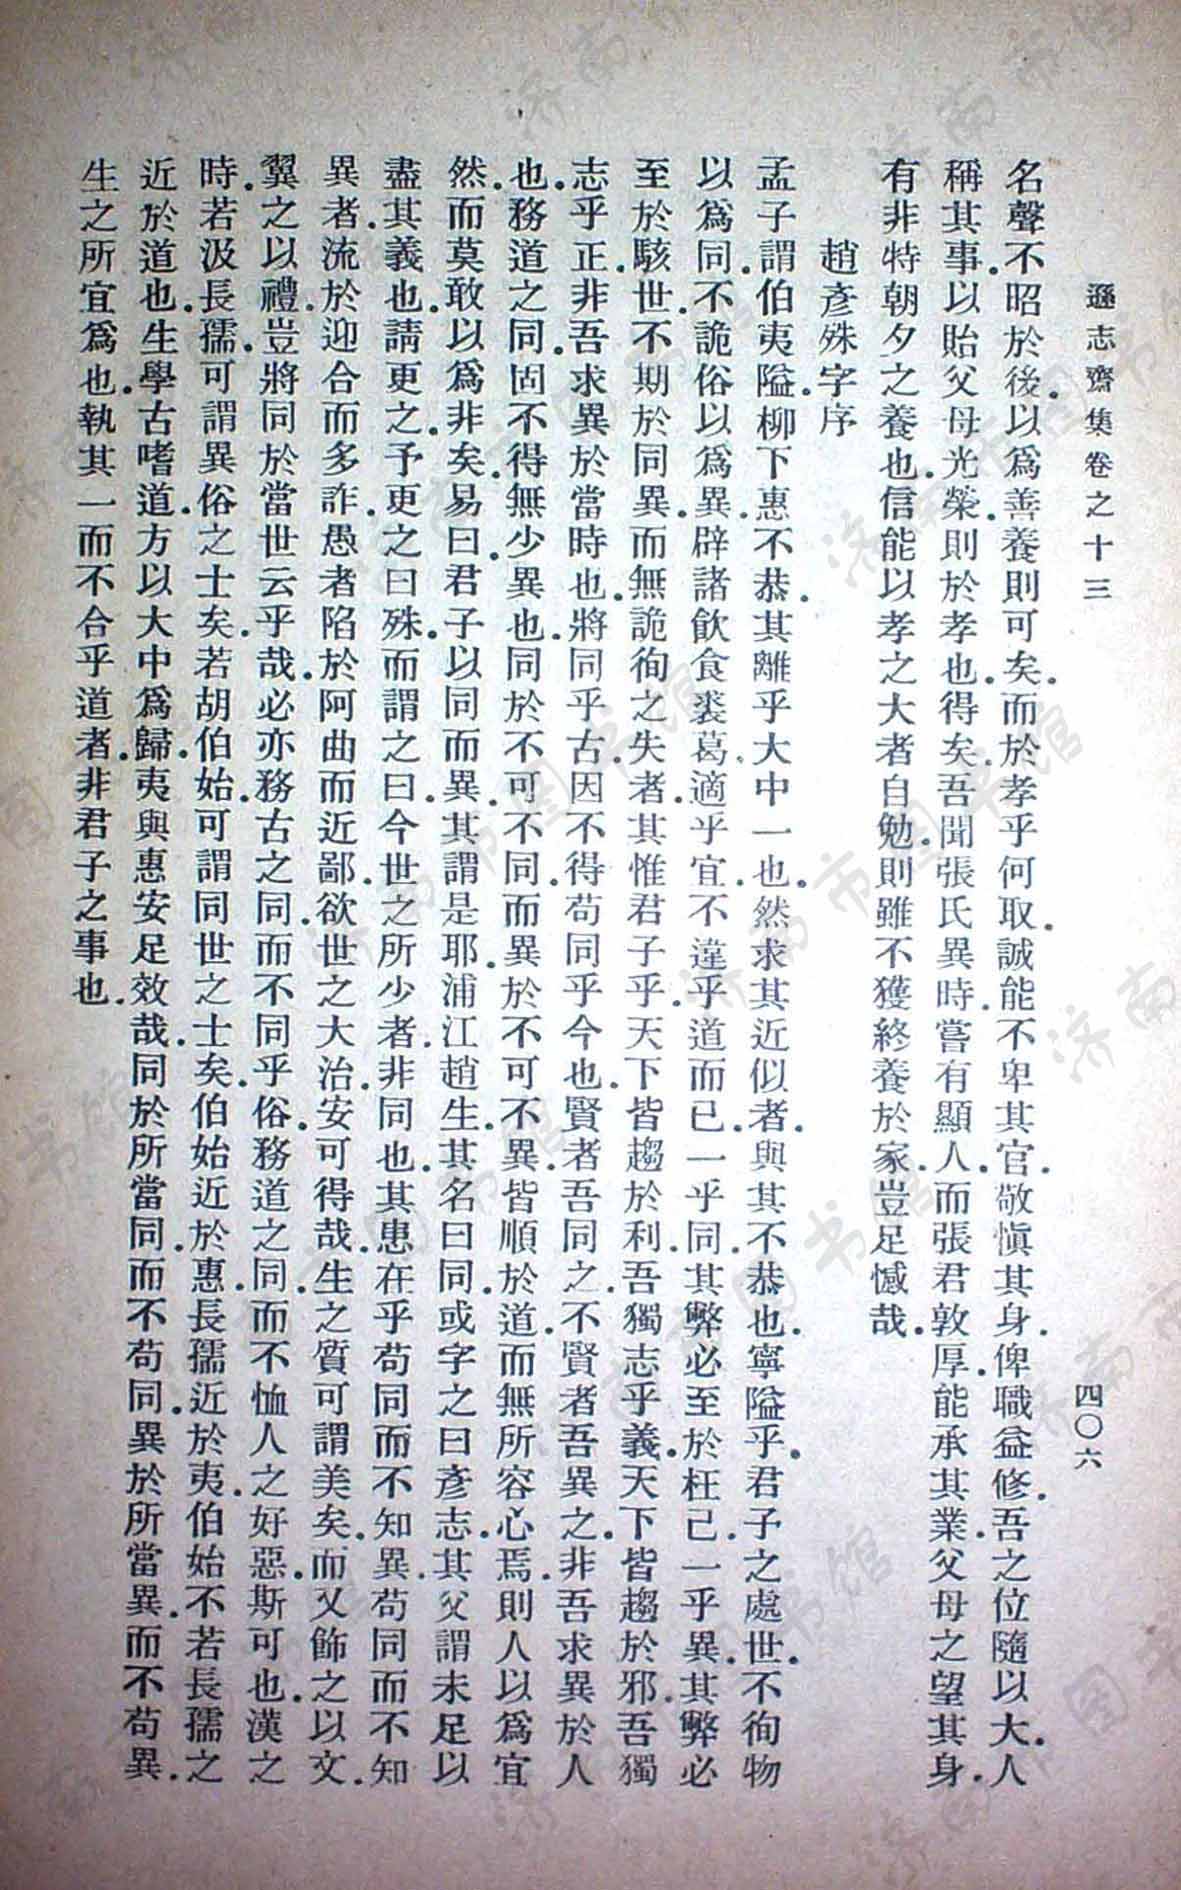 遜志齋集卷之十三
四〇六
名聲不昭於後.以爲善養則可矣.而於孝乎何取.誠能不卑其官.敬愼其身.俾職益修.吾之位隨以大.人
稱其事.以貽父母光榮.則於孝也得矣.吾聞張氏異時嘗有顯人.而張君敦厚能承其業.父母之望其身.
有非特朝夕之養也.信能以孝之大者自勉.則雖不獲終養於家.豈足憾哉.
趙彥殊字序
孟子謂伯夷隘.柳下惠不恭.其離乎大中一也.然求其近似者.與其不恭也.寧隘乎.君子之處世.不徇物
以爲同.不詭俗以爲異.辟諸飲食裘葛、適乎宜.不違乎道而已.一乎同.其弊必至於枉己.一乎異.其弊必
至於駭世.不期於同異.而無詭徇之失者.其惟君子乎.天下皆趨於利.吾獨志乎義.天下皆趨於邪.吾獨
志乎正.非吾求異於當時也.將同乎古.因不得苟同乎今也.賢者吾同之.不賢者吾異之.非吾求異於人
也.務道之同.固不得無少異也.同於不可不同.而異於不可不異.皆順於道.而無所容心焉.則人以爲宜
然.而莫敢以爲非矣.易曰.君子以同而異.其謂是耶.浦江趙生.其名曰同.或字之曰彥志.其父謂未足以
盡其義也.請更之.予更之曰殊.而謂之曰.今世之所少者.非同也.其患在乎苟同而不知異.苟同而不知
異者.流於迎合而多詐.愚者陷於阿曲而近鄙.欲世之大治.安可得哉.生之質可謂美矣.而又飾之以文.
翼之以禮.豈將同於當世云乎哉.必亦務古之同.而不同乎俗.務道之同.而不恤人之好惡.斯可也.漢之
時.若汲長孺.可謂異俗之士矣.若胡伯始.可謂同世之士矣.伯始近於惠.長孺近於夷.伯始不若長孺之
近於道也.生學古嗜道.方以大中爲歸.夷與惠安足效哉.同於所當同.而不苟同.異於所當異.而不苟異.
生之所宜爲也.執其一而不合乎道者.非君子之事也.